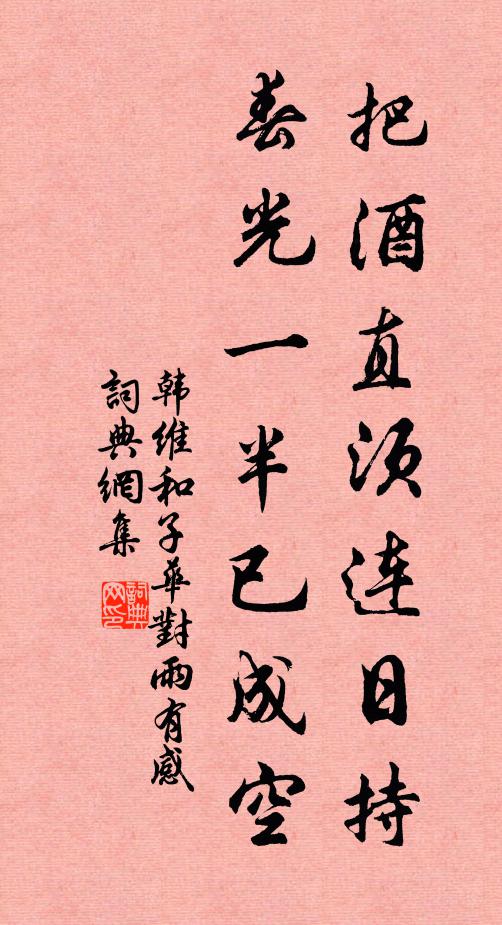 把酒直须连日持
春光一半已成空
韩维和子华對雨有感
詞典網集
詞典网印